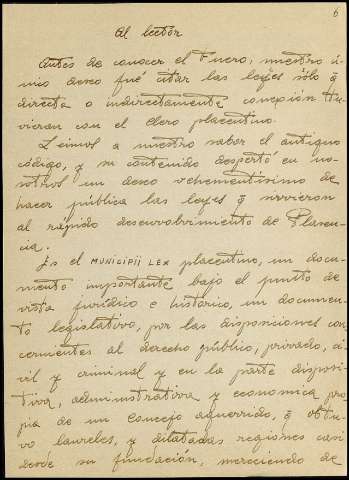 6
Al lector
Antes de conocer el Fuero, nuestro ú-
nico deseo fué citar las leyes sólo q̃
directa o indirectamente conexión tu-
vieran con el clero placentino.
Leimos a nuestro sabor el antiguo
código, y su contenido despertó en no-
sotros un deseo vehementísimo de
hacer pública las leyes q̃ sirvieron
al rápido desenvolvimiento de Plasen-
cia.
Es el MUNICIPII LEX placentino, un docu-
mento importante bajo el punto de
vista jurídico e histórico, un documen-
to legislativo, por las disposiciones con-
cernientes al derecho público, privado, ci-
vil y criminal y en la parte disposi-
tiva, administrativa y economica pro-
pia de un Concejo aguerrido, q̃ obtu-
vo laureles, y dilatadas regiones casi
desde su fundación, mereciendo de